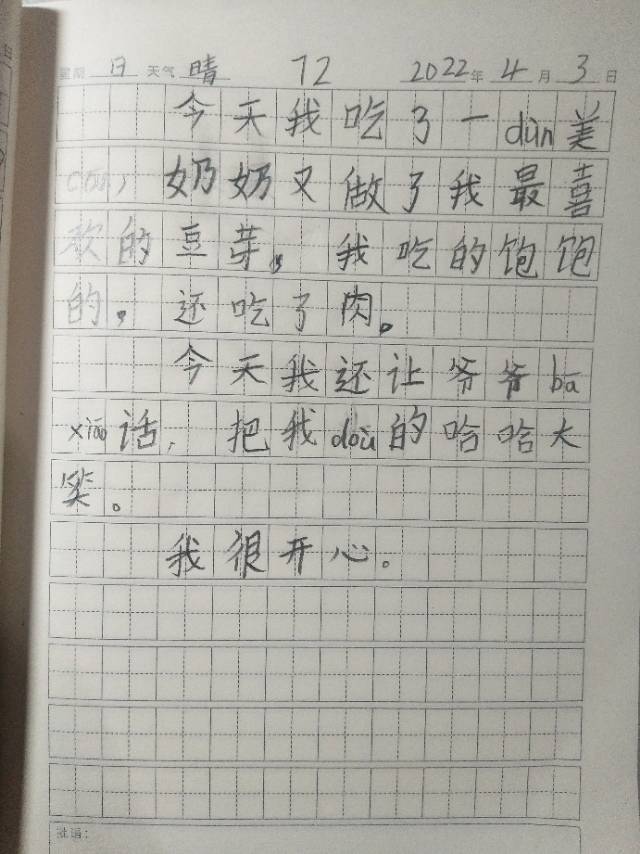 星期 日 天气 晴 72 2022年 4月 3日
今天我吃了一dùn美
cān，奶奶又做了我最喜
欢的豆芽，我吃的饱饱
的，还吃了肉。
今天我还让爷爷bā
xiào话，把我doù的哈哈大
笑。
我很开心。
批语：